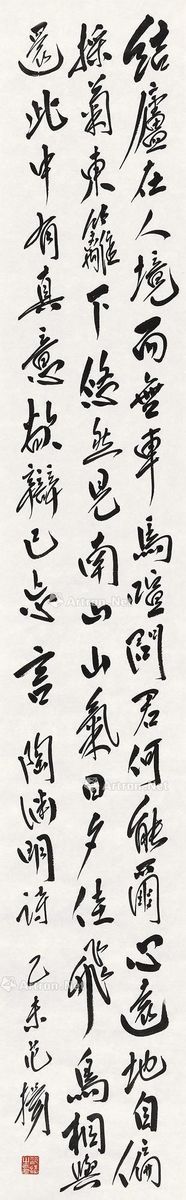 结廬在人境而無車馬喧問君何能爾心遠地自偏
採菊東籬下悠然見南山山氣日夕佳飛鳥相與
還此中有真意欲辯已忘言 陶淵明詩 乙未范揚